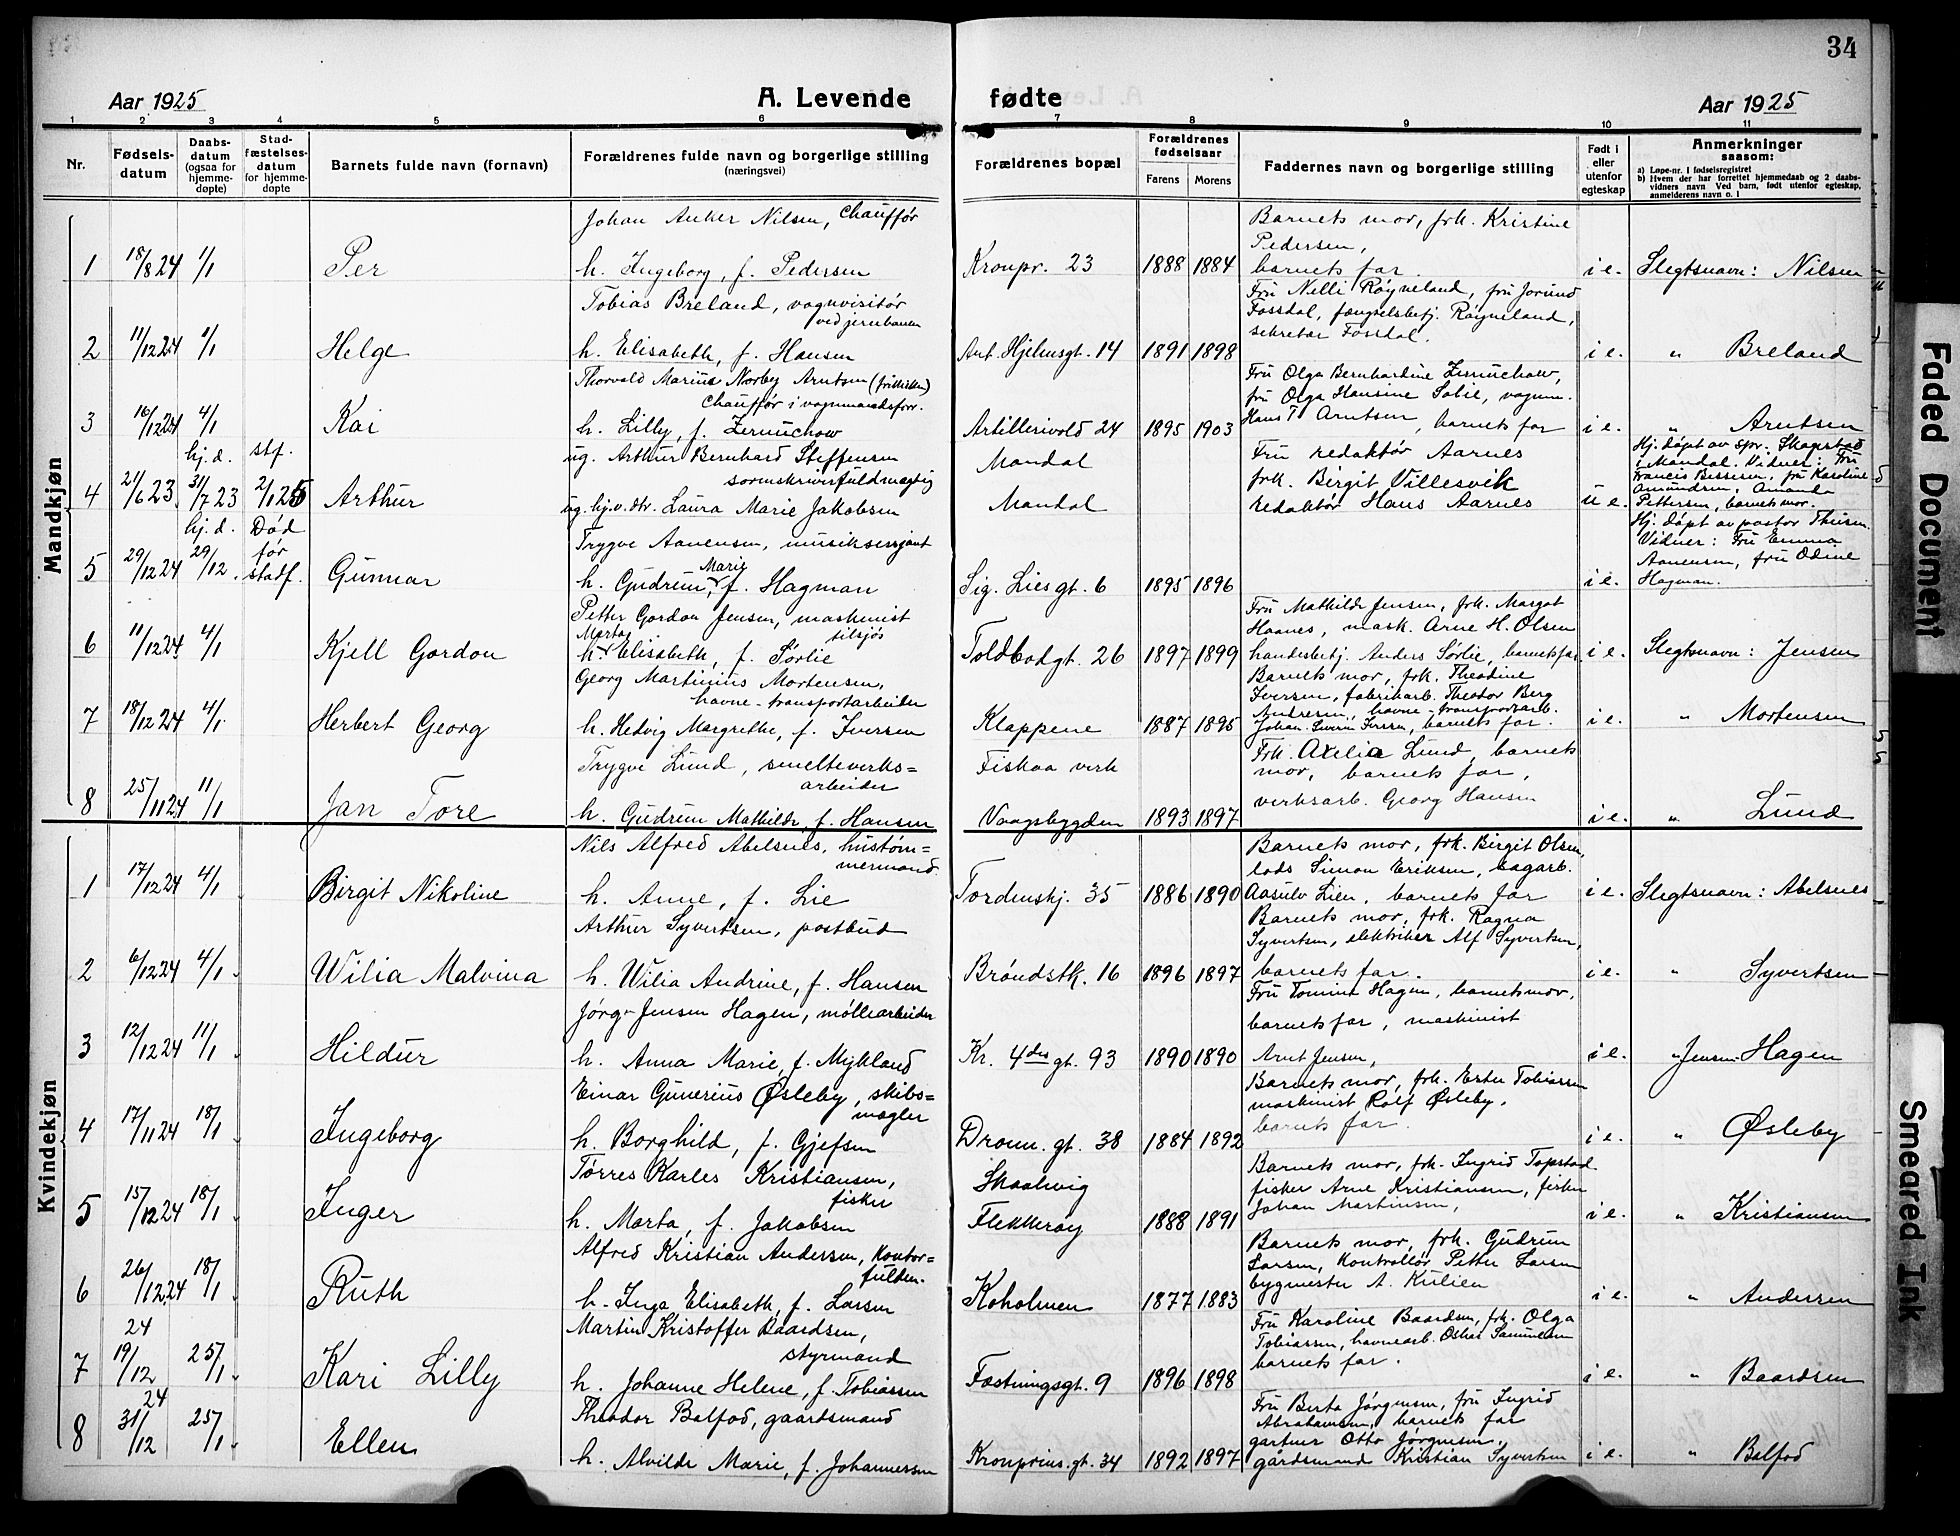 34
Aar 1925
A. Levende
fødte
Aar 1925
1 2 3 4 5 6 7 8 9 10 11
Nr.
Fødsels-
datum
Daabs-
datum
(ogsaa for
hjemme-
døpte)
Stad-
fæstelses-
datum
for hjemme-
døpte
Barnets fulde navn (fornavn)
Forældrenes fulde navn og borgerlige stilling
(næringsvei)
Forældrenes bopæl
Forældrenes
fødselsaar
Farens Morens
Faddernes navn og borgerlige stilling
Født i
eller
utenfor
egteskap
Anmerkninger
saasom:
a) Løpe-nr. i fødselsregistret
b) Hvem der har forrettet hjemmedaab og 2 daabs-
vidners navn Ved barn, født utenfor egteskap,
anmelderens navn o. l
Mandkjøn
1 18/8 24 1/1 Per
Johan Anker Nilsen, Chauffør
h. Ingeborg, f. Pedersen
Kronpr. 23 1888 1884
Barnets mor, frk. Kristine
Pedersen,
barnets far.
i e. Slegtsnavn: Nilsen
2 11/12 24 1/1 Helge
Tobias Breland, vognvisitør
ved jernbanen
h. Elisabeth, f. Hansen
Ant. Hjelmsgt. 14 1891 1898
Fru Nelli Røyneland, fru Jorund
Fossdal, fængselsbetj. Røyneland,
sekretær Fossdal.
i e. " Breland
3 16/12 24 4/1 Kai
Thorvald Marius Norby Arntsen (frikirken)
Chauffør i vognmandsforr.
h. Lilly, f. Zernichow
Artillerivold 24 1895 1903
Fru Olga Bernhardine Zernichow,
fru Olga Hansine Solie, vognm.
Hans T Arntsen, barnets far
i e. " Arntsen
4 21/6 23. hj. d. 31/7 23 stf. 2/1 25 Arthur
ug. Arthur Bernhard Steffensen
sorenskriverfuldmægtig
ug. hj.v. dtr. Laura Marie Jakobsen
Mandal
Mandal
Fru redaktør Aarnes
frk. Birgit Villesvik
redaktør Hans Aarnes
u e.
Hj. døpt av spr. Skagestad
i Mandal. Vidner: Fru
Francis Bissesen, fru Karoline
Amundsen, Amanda
Pettersen, barnets mor.
5 29/12 24 hj. d. 29/12. Død
før
stadf. Gunnar
Trygve Aanensen, musiksersjant
h. Gudrun Marie, f. Hagman
Sig. Lies gt. 6 1895 1896
i e.
Hj. døpt av pastor Thursen
Vidner: Fru Emma
Aanensen, fru Odine
Hagman.
6 11/12 24 4/1 Kjell Gordon
Petter Gordon Jensen, maskinist
tilsjøs
h. Marta Elisabeth, f. Sørlie
Toldbodgt. 26 1897 1899
Fru Mathilde Jensen, frk. Margot
Haanes, mask. Arne H. Olsen
handesbetj. Anders Sørlie, barnets far
i e. Slegtsnavn: Jensen
7 18/12 24 4/1 Herbert Georg
Georg Martinius Mortensen,
havne-transportarbeider
h. Hedvig Margrethe, f. Iversen
Klappene 1887 1895
Barnets mor, frk. Theodine
Iversen, fabrikarb. Theodor Berg
Andresen, havne-transportarb.
Johan Severin Iversen, barnets far.
i e. " Mortensen
8 25/11 24 11/1 Jan Tore
Trygve Lund, smelteverks=
arbeider
h. Gudrun Mathilde, f. Hansen
Fiskaa verk
Vaagsbygden 1893 1897
Frk. Axelia Lund, barnets
mor, barnets far,
verksarb. Georg Hansen
i e. " Lund
Kvindekjøn
1 17/12 24 4/1 Birgit Nikoline
Nils Alfred Abelsnes, hustøm=
mermand
h. Anne, f. Lie
Tordenskj. 35 1886 1890
Barnets mor, frk. Birgit Olsen,
lods Simon Eriksen, bagarb.
Aasulv Lien, barnets far
i e. Slegtsnavn: Abelsnes
2 6/12 24 4/1 Wilia Malvina
Arthur Syvertsen, postbud
h. Wilia Andrine, f. Hansen
Brøndstk. 16 1896 1897
Barnets mor, frk. Ragna
Syvertsen, elektriker Alf Syvertsen,
barnets far.
i e. " Syvertsen
3 12/12 24 11/1 Hildur
Jørg. Jensen Hagen, møllearbeider
h. Anna Marie, f. Mykland
Kr. 4des gt. 93 1890 1890
Fru Tomine Hagen, barnets mor,
barnets far, maskinist
Arnt Jensen,
i e. " Jensen Hagen
4 17/11 24 18/1 Ingeborg
Einar Gunerius Øsleby, skibs=
mægler
h. Borghild, f. Gjefsen
Dronn. gt. 38 1884 1892
Barnets mor, frk. Ester Tobiassen
maskinist Rolf Øsleby,
barnets far.
i e. " Øsleby
5 15/12 24 18/1 Inger
Tørres Karles Kristiansen,
fisker
h. Marta, f. Jakobsen
Skaalevig
Flekkerøy 1888 1891
Barnets mor, frk. Ingrid Topstad
fisker Arne Kristiansen, fisker
Johan Martinsen,
i e. " Kristiansen
6 26/12 24 18/1 Ruth
Alfred Kristian Andersen, kontor=
fuldm.
h. Inga Elisabeth, f. Larsen
Koholmen 1877 1883
Barnets mor, frk. Gudrun
Larsen, Kontrollør Petter Larsen
bygmester A. Kulien
i e. " Andersen
7 24 19/12 25/1 Kari Lilly
Martin Kristoffer Baardsen,
styrmand
h. Johanne Helene, f. Tobiassen
Festningsgt. 9 1896 1898
Fru Karoline Baardsen, frk. Olga
Tobiassen, havnearb. Oskar Samuelsen
barnets far.
i e. " Baardsen
8 24 31/12 25/1 Ellen
Theodor Balfod, gaardsmand
h. Alvilde Marie, f. Johannessen
Kronprins. gt. 34 1892 1897
Fru Berta Jørgensen, fru Ingrid
Abrahamsen, barnets far
gartner Otto Jørgensen,
gårdsmand Kristian Syvertsen
i e. " Balfod
Faded Document
Smeared Ink